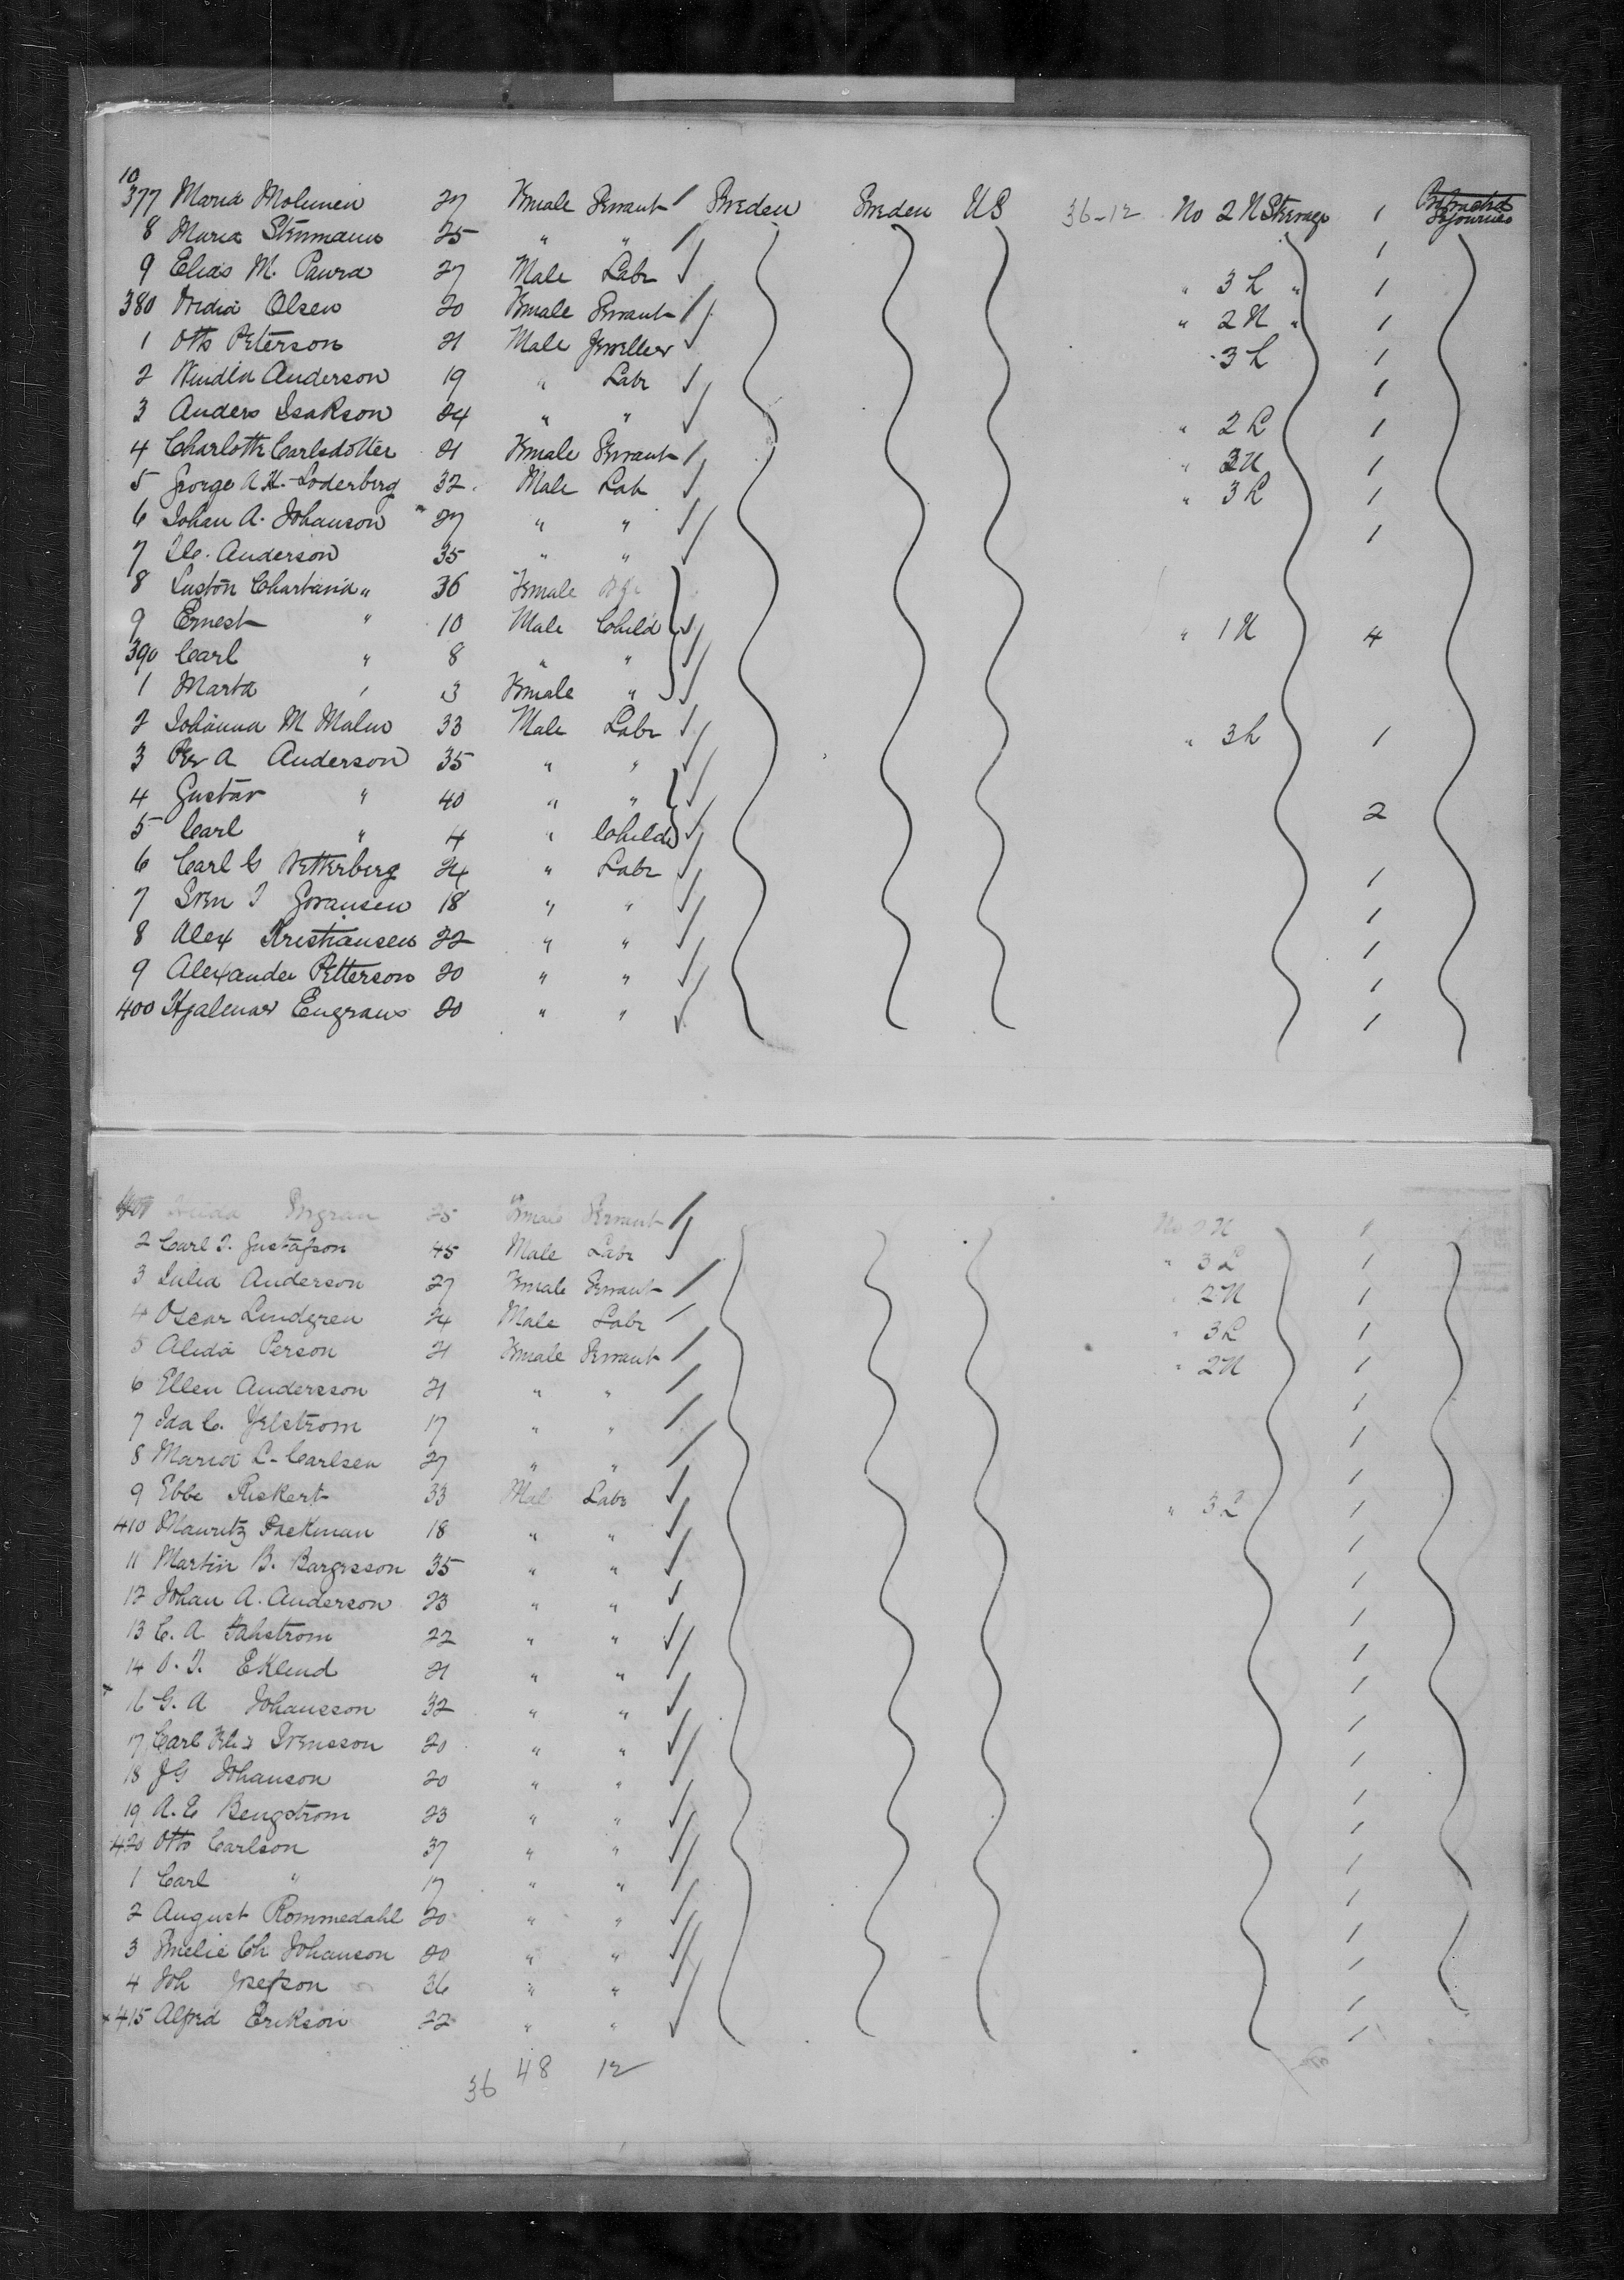 10
377 Maria Molumen 27 Female Servant / Sweden Sweden US 36-12 No 2 N Steerage 1 Protracted Sojourner
8 Maria Stenmann 25 " " 1
9 Elias M. Paura 27 Male Labr " 3 L " 1
380 Vidia Olsen 20 Female Servant " 2 N " 1
1 Otto Peterson 21 Male Jeweller " 3 L 1
2 Wendla Anderson 19 " Labr 1
3 Anders Isakson 24 " " " 2 L 1
4 Charlotte Carlsdotter 21 Female Servant " 3N 1
5 George A H. Soderberg 32 Male Lab " 3 L 1
6 Johan A. Johanson 27 " " 1
7 Anderson 35 " "
8 " 36 Female Wife
9 Ernest " 10 Male Child " 1 N 4
390 Carl " 8 " "
1 Marta " 3 Female "
2 Johanna M Malm 33 Male Labr " 3 L 1
3 Per A Anderson 35 " "
4 Gustav " 40 " " 2
5 Carl " 4 " Child
6 Carl G Wetterberg 24 " Labr 1
7 Sven J Goransen 18 " " 1
8 Alex Kristiansen 22 " " 1
9 Alexander Petterson 20 " " 1
400 Hjalmar Engrans 20 " " 1
401 Hilda 25 Female Servant No 2 N 1
2 Carl J. Gustafson 45 Male Labr " 3 L 1
3 Julia Anderson 27 Female Servant 2N 1
4 Oscar Lindgren 24 Male Labr " 3 L 1
5 Alida Person 21 Female Servant " 2N 1
6 Ellen Andersson 21 " " 1
7 Ida C. Yelstrom 17 " " 1
8 Maria L. Carlsen 27 " " 1
9 Ebbe Riskert 33 Male Labr " 3 L 1
410 Mauritz Packman 18 " " 1
11 Martin B. Bargesson 35 " " 1
12 Johan A. Anderson 23 " " 1
13 C. A Fahstrom 22 " " 1
14 O. J. Eklund 21 " " 1
16 G. A Johansson 32 " " 1
17 Carl Svensson 20 " " 1
18 J G Johanson 20 " " 1
19 A. E Bengstrom 23 " " 1
420 Otto Carlson 37 " " 1
1 Carl " 17 " " 1
2 August Rommedahl 20 " " 1
3 Emelie Ch Johanson 20 " " 1
4 Joh Josefson 36 " " 1
x 415 Alfred Erikson 22 " " 1
36 48 12